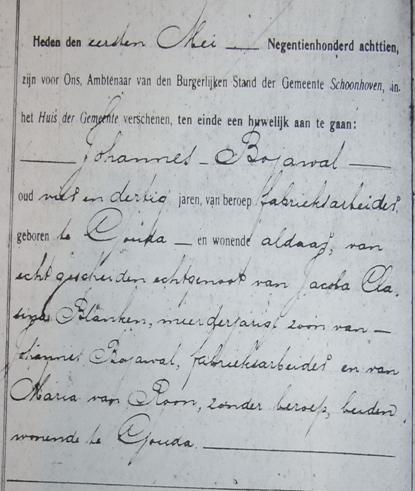 Heden den eersten Mei — Negentienhonderd achttien,
zijn voor Ons, Ambtenaar van den Burgerlijken Stand der Gemeente Schoonhoven, in
het Huis der Gemeente verschenen, ten einde een huwelijk aan te gaan:
— Johannes - Bojawal —
oud vier en dertig jaren, van beroep fabrieksarbeider,
geboren te Gouda — en wonende aldaar, van
echt gescheiden echtgenoot van Jacoba Cla-
sina Blanken, meerderjarig zoon van —
Bojawal, fabrieksarbeider en van
Maria van Roon, zonder beroep, beiden
wonende te Gouda. —